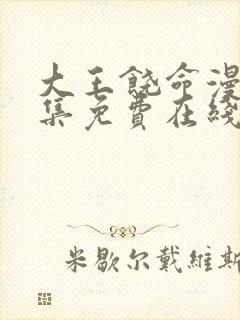 大王饶命漫
集免费在线
米歇尔戴維斯